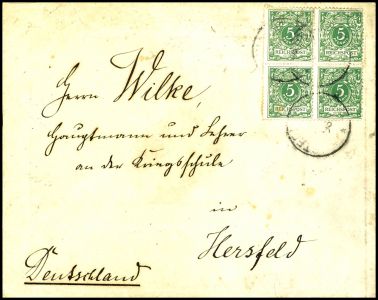 5 5
REICHSPOST REICHSPOST
5 5
REICHSPOST REICHSPOST
Herrn Wilke,
Hauptmann und Lehrer
an der Kriegsschule
in
Hersfeld
Deutschland